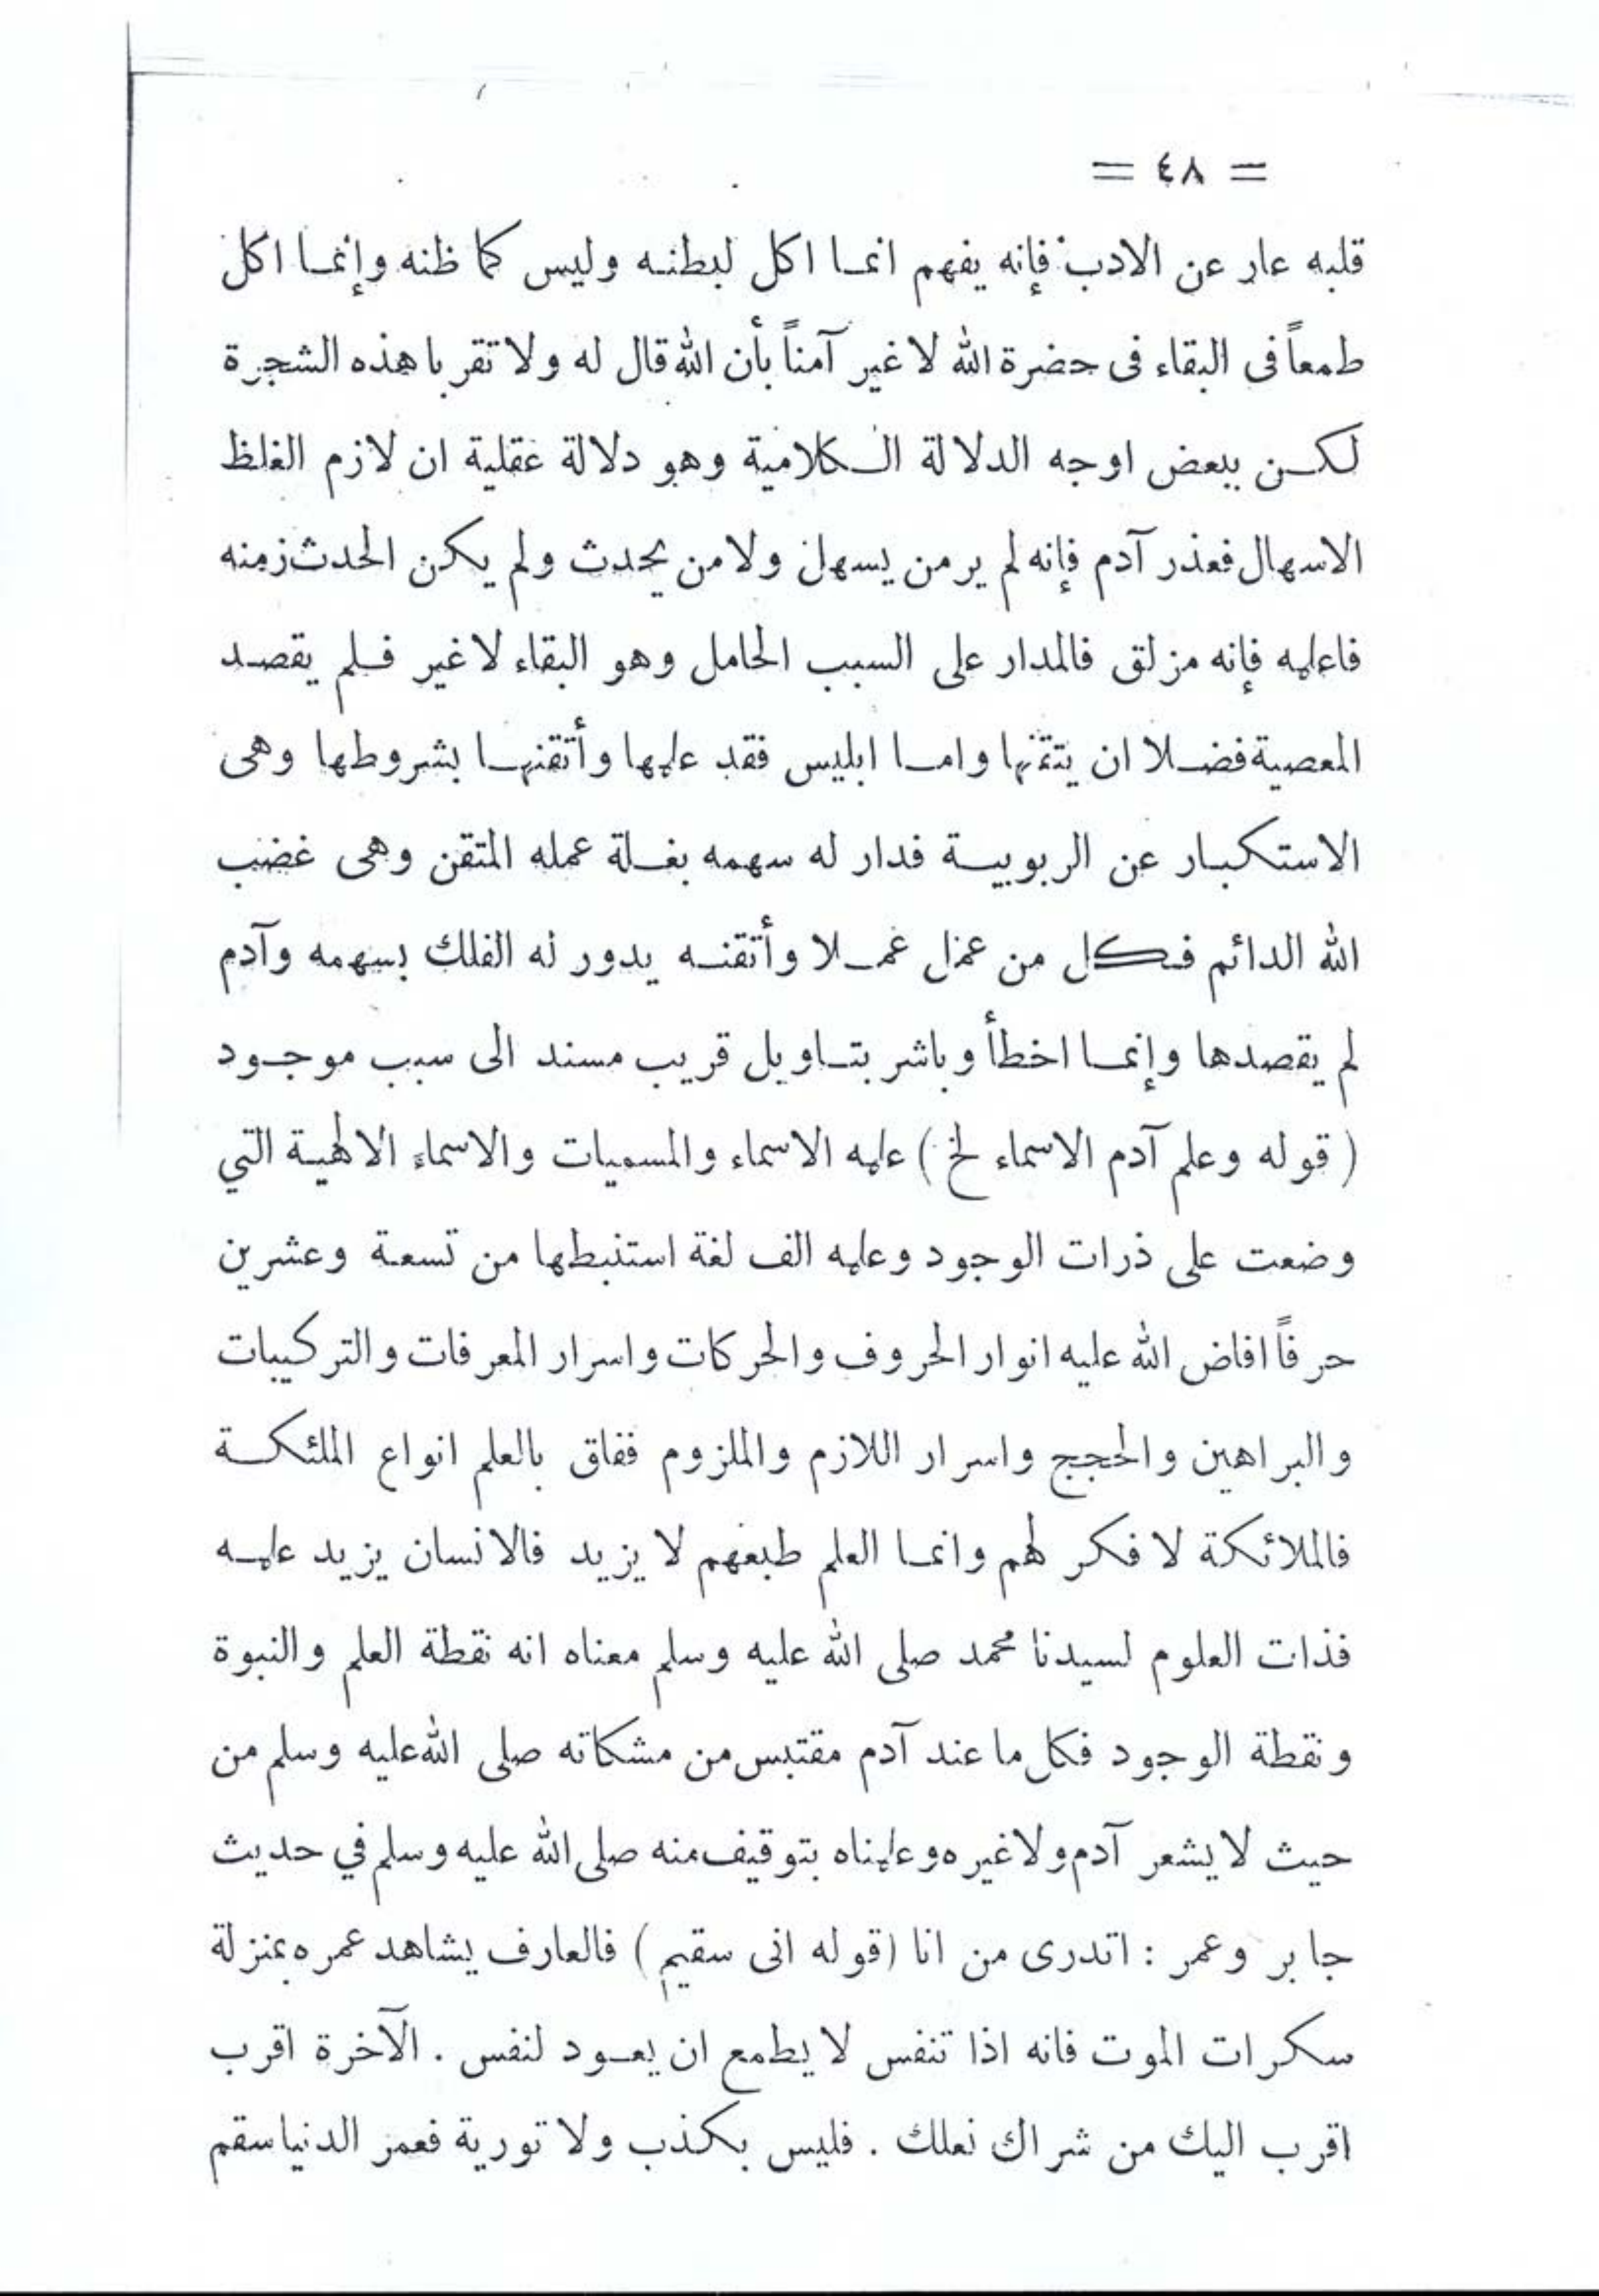 = ٤٨ =
قلبه عار عن الادب فإنه يفهم انما اكل لبطنه وليس كما ظنه وإنما اكل
طمعاً فى البقاء فى حضرة الله لا غير آمناً بأن الله قال له ولا تقربا هذه الشجرة
لكن ببعض اوجه الدلالة الكلامية وهو دلالة عقلية ان لازم الغلظ
الاسهال فعذر آدم فإنه لم ير من يسهل ولا من يحدث ولم يكن الحدث زمنه
فاعلمه فإنه مزلق فالمدار على السبب الحامل وهو البقاء لا غير فلم يقصد
المعصية فضلا ان يتقنها واما ابليس فقد علمها وأتقنها بشروطها وهى
الاستكبار عن الربوبية فدار له سهمه بغلة عمله المتقن وهى غضب
الله الدائم فكل من عمل عملا وأتقنه يدور له الفلك بسهمه وآدم
لم يقصدها وإنما اخطأ وباشر بتاويل قريب مسند الى سبب موجود
( قوله وعلم آدم الاسماء لخ ) علمه الاسماء والمسميات والاسماء الالهية التي
وضعت على ذرات الوجود وعلمه الف لغة استنبطها من تسعة وعشرين
حرفاً افاض الله عليه انوار الحروف والحركات واسرار المعرفات والتركيبات
والبراهين والحجج واسرار اللازم والملزوم ففاق بالعلم انواع الملئكة
فالملائكة لا فكر لهم وانما العلم طبعهم لا يزيد فالانسان يزيد علمه
فذات العلوم لسيدنا محمد صلى الله عليه وسلم معناه انه نقطة العلم والنبوة
ونقطة الوجود فكل ما عند آدم مقتبس من مشكاته صلى الله عليه وسلم من
حيث لا يشعر آدم ولا غيره وعلمناه بتوقيف منه صلى الله عليه وسلم في حديث
جابر وعمر : اتدرى من انا (قوله انى سقيم ) فالعارف يشاهد عمره بمنزلة
سكرات الموت فانه اذا تنفس لا يطمع ان يعود لنفس . الآخرة اقرب
اقرب اليك من شراك نعلك . فليس بكذب ولا تورية فعمر الدنيا سقم